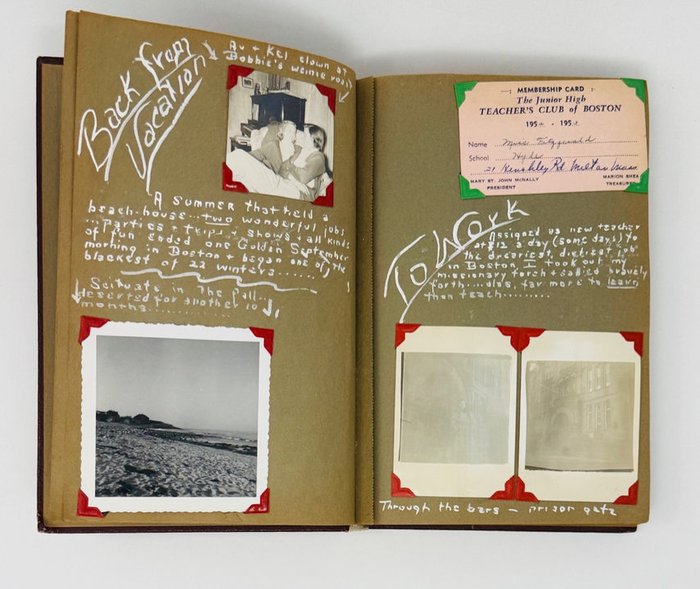 Back from
Vacation
Au + Kel clown at
Bobbie's weinie roast
A summer that held a
beach-house...two wonderful jobs
...Parties + trips + shows, all kinds
of fun ended one Golden September
morning in Boston + began one of the
blackest of 22 winters......
Scituate in the fall..
deserted for another 10
months............
MEMBERSHIP CARD
The Junior High
TEACHER'S CLUB of BOSTON
195 - 195
Name Miss Fitzgerald
School Hyde
21 Hinckley Rd Milton Mass
MARY ST. JOHN McNALLY
PRESIDENT
MARION SHEA
TREASURER
To Work
Assigned as new teacher
at $12 a day (some days) to
the dreariest, dirtiest job
in Boston I took out my
missionary torch + sallied bravely
forth...alas, far more to learn
than teach..........
Through the bars — prison gate